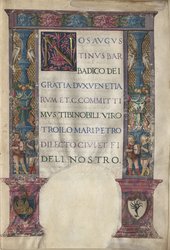 NOS AVGVS
TINVS BAR
BADICO DEI
GRATIA·DVX VENETIA
RVM·ETC·COMMITTI
MVS TIBI NOBILI VIRO
TROILO MARIPETRO
DILECTO CIVI ET FI
DELI NOSTRO.